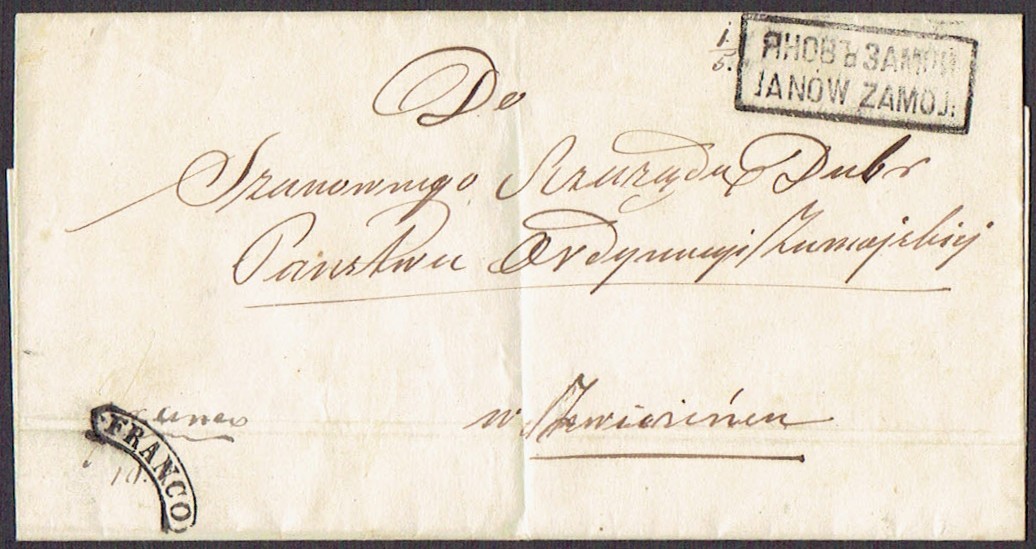 1/5.
ЯНОВЪ ЗАМОЙ
JANÓW ZAMOJ:
Do
Szanownego Rządu Dubr
Państwa Ordynacyi Zamojskiej
w Zwierzińcu
Franco
FRANCO
10.